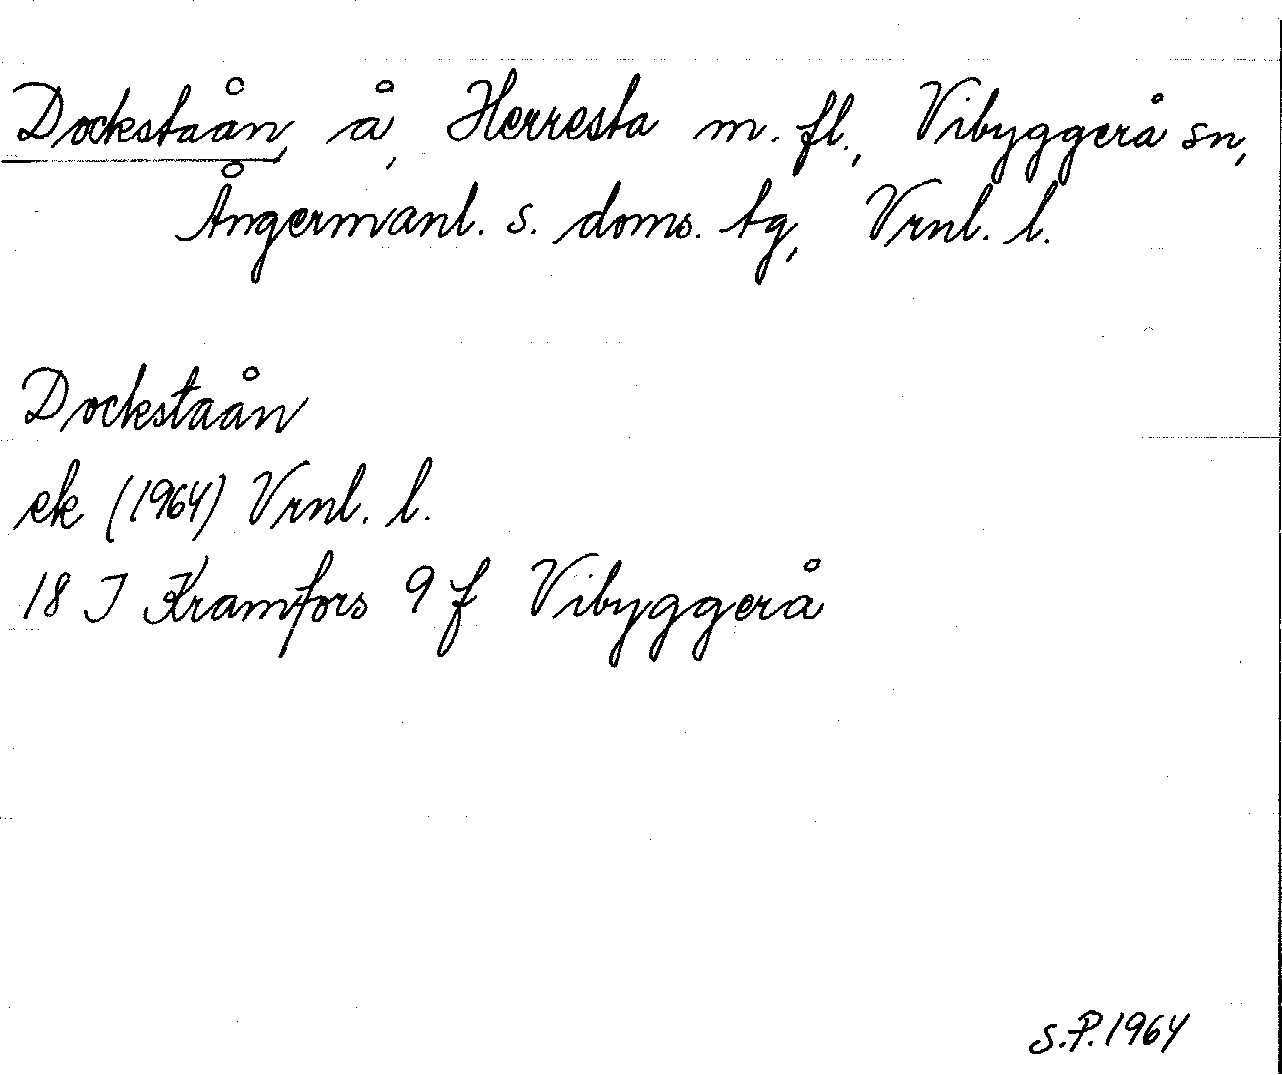 Dockstaån, å, Herresta m. fl., Vibyggerå sn,
Ångermanl. s. doms. tg, Vrnl. l.
Dockstaån
ek (1964) Vrnl. l.
18 J Kramfors 9 f Vibyggerå
S.P. 1964